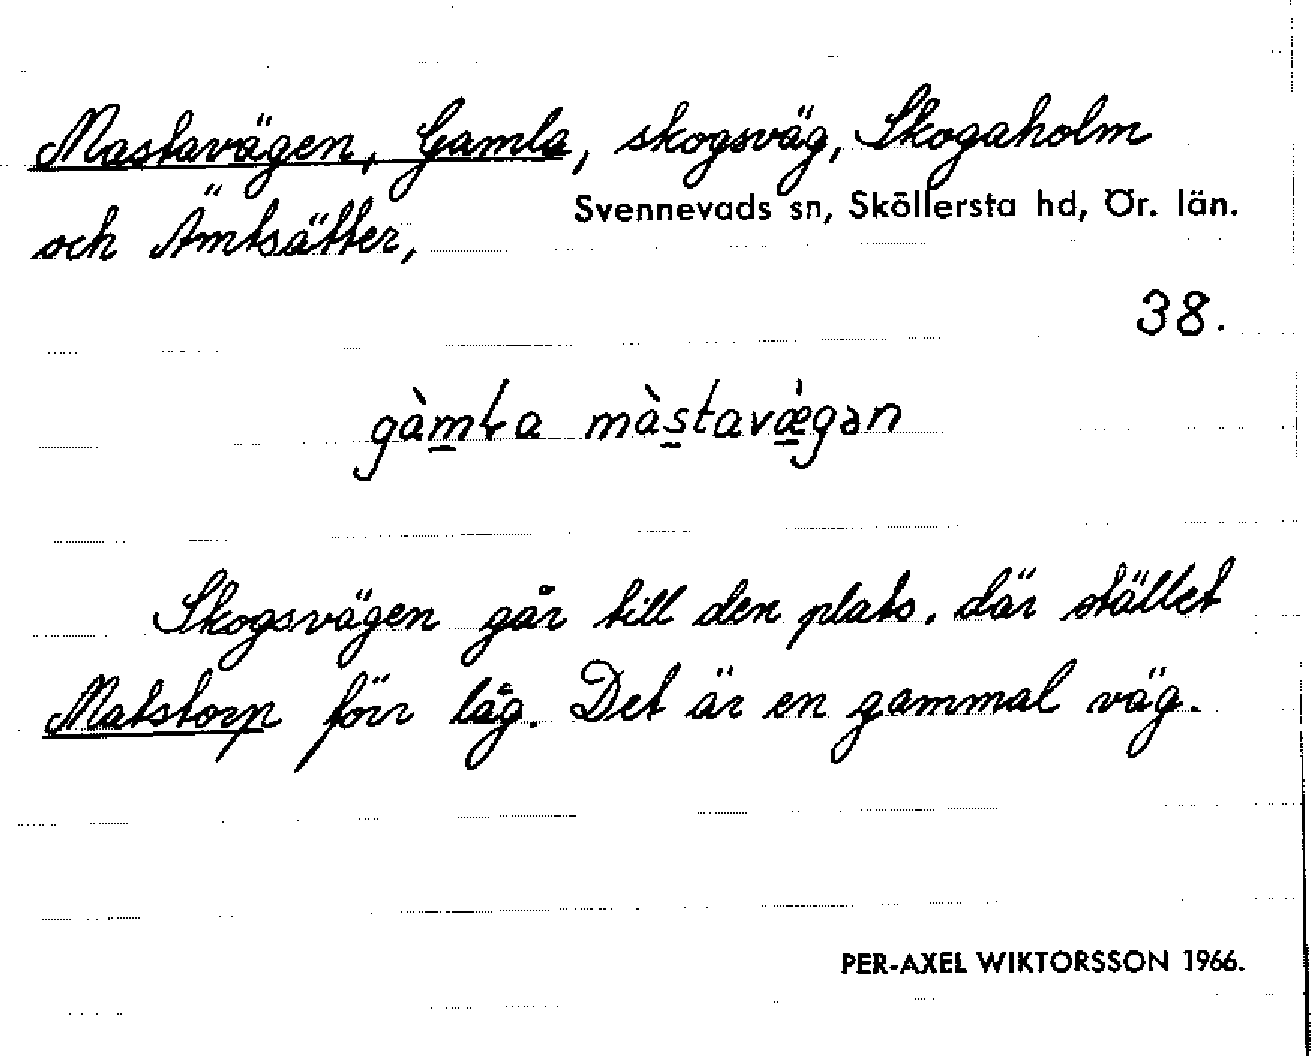 Mastavägen, Gamla, skogsväg, Skogaholm
och Ämtsätter, Svennevads sn, Sköllersta hd, Ör. län.
38.
gàm̲ɫa màs̲tavæ̲̀gən
Skogsvägen går till den plats, där stället
Matstorp förr låg. Det är en gammal väg.
PER-AXEL WIKTORSSON 1966.